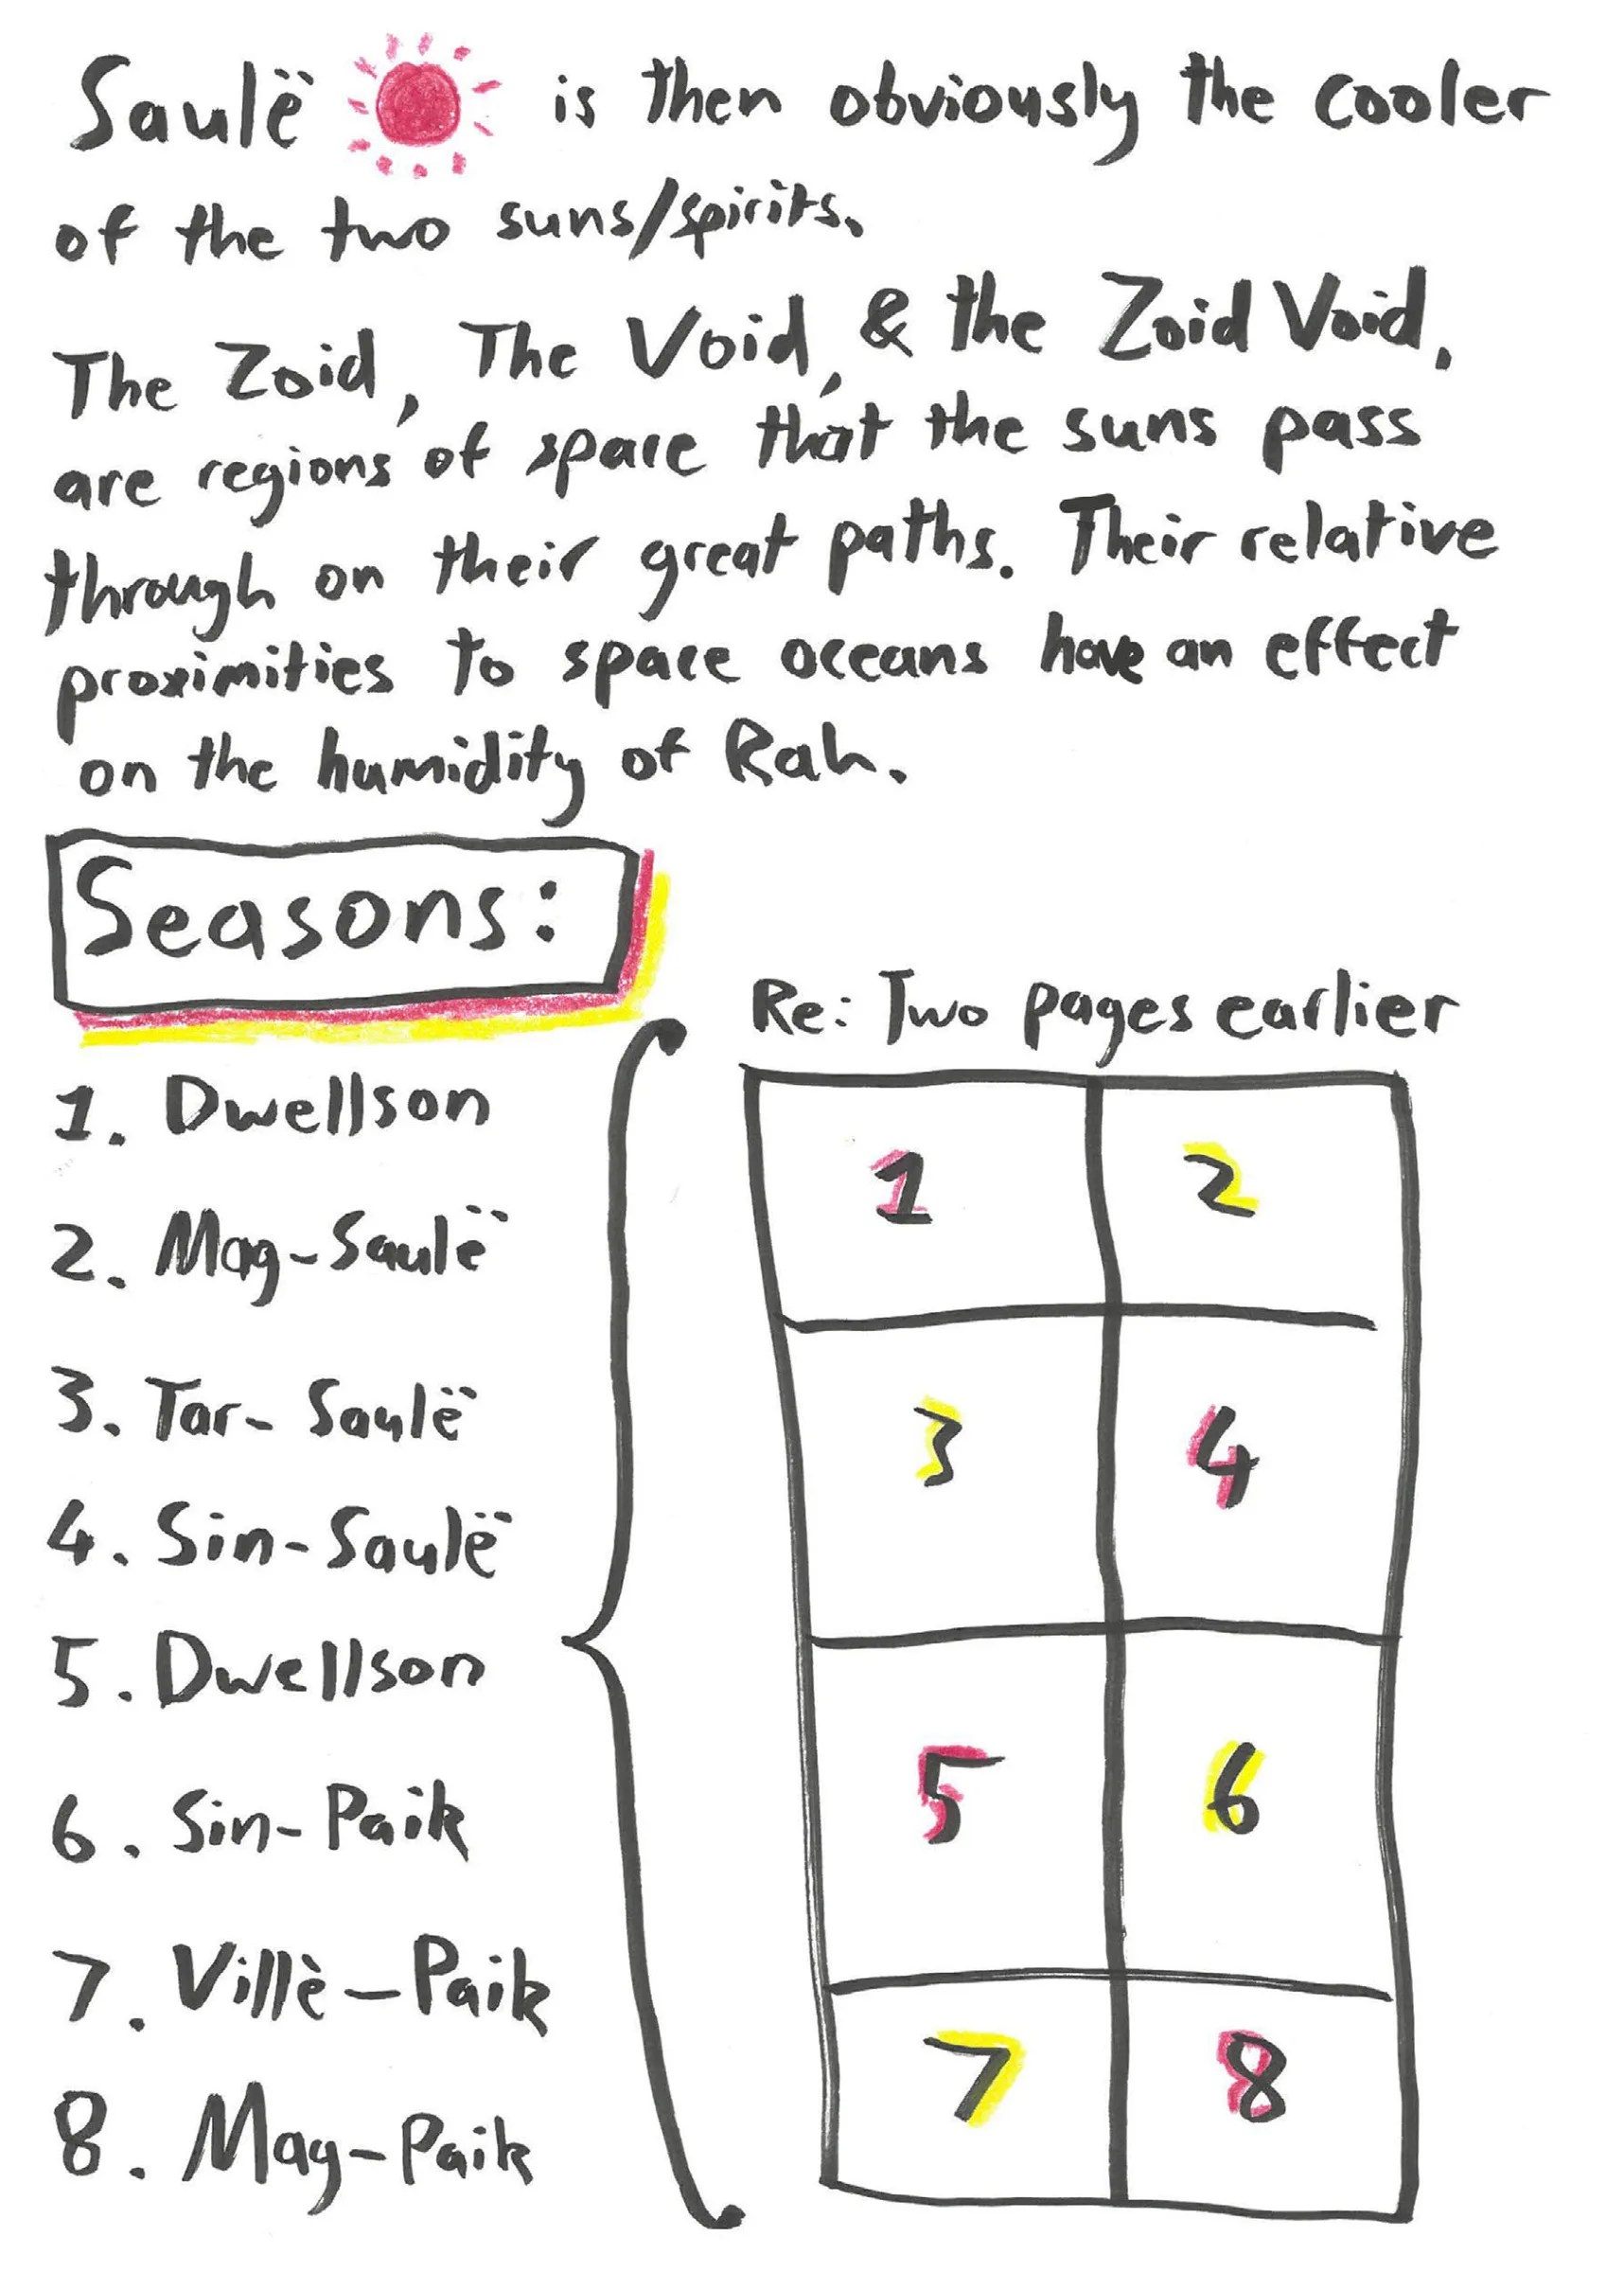 Saulë is then obviously the cooler
of the two suns/spirits.
The Zoid, The Void, & the Zoid Void,
are regions of space that the suns pass
through on their great paths. Their relative
proximities to space oceans have an effect
on the humidity of Rah.
Seasons:
1. Dwellson
2. Mag-Saulë
3. Tar-Saulë
4. Sin-Saulë
5. Dwellson
6. Sin-Paik
7. Villè-Paik
8. Mag-Paik
Re: Two pages earlier
1 2
3 4
5 6
7 8